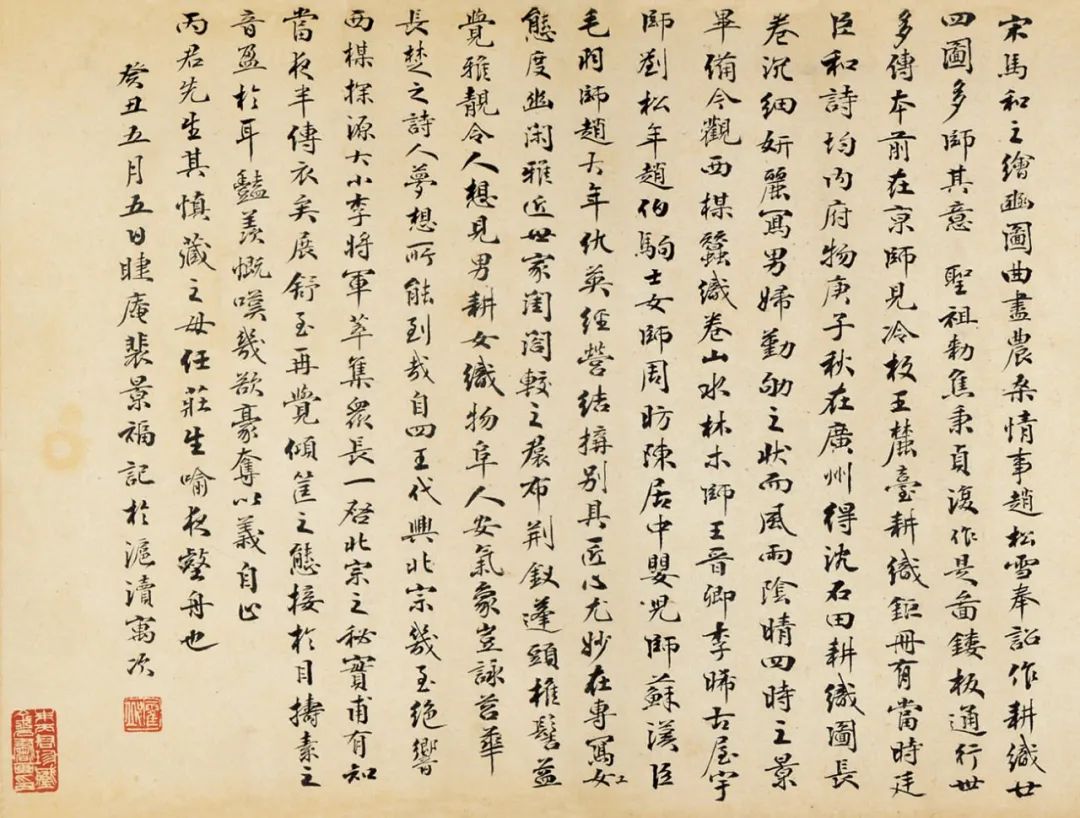 宋馬和之繪豳圖曲盡農桑情事趙松雪奉詔作耕織廿
四圖多師其意 聖祖勅焦秉貞復作是啚鏤板通行世
多傳本前在京師見冷枚王麓臺耕織鉅冊有當時廷
臣和詩均內府物庚子秋在廣州得沈石田耕織圖長
卷沉細妍麗寫男婦勤劬之狀而風雨陰晴四時之景
畢備今觀西楳蠶織卷山水林木師王晉卿李晞古屋宇
師劉松年趙伯駒士女師周昉陳居中嬰兒師蘇漢臣
毛羽師趙大年仇英經營結搆別具匠心尤妙在專寫女工
態度幽閑雅近世家閨閤較之裠布荊釵蓬頭椎髻益
覺雅靚令人想見男耕女織物阜人安氣象豈詠苕華
長楚之詩人夢想所能到哉自四王代興北宗幾至絕響
西楳探源大小李將軍萃集眾長一啟北宗之秘實甫有知
當夜半傳衣矣展舒至再覺傾筐之態接於目擣素之
音盈於耳豔羨慨嘆幾欲豪奪以義自止
丙君先生其慎藏之毋任莊生喻夜壑舟也
癸丑五月五日睫庵裴景福記於滬瀆寓次